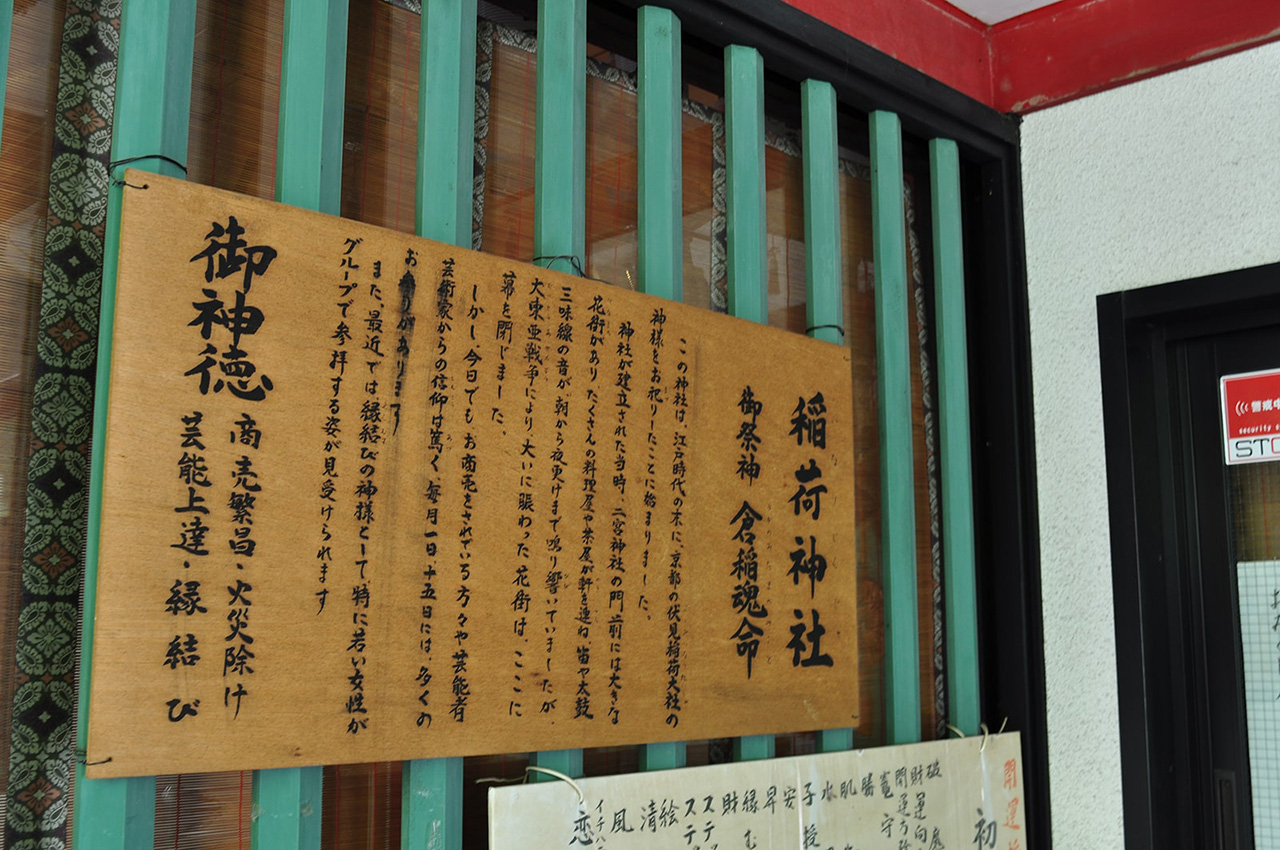 稲荷神社
御祭神 倉稲魂命
この神社は、江戸時代の末に、京都の伏見稲荷大社の
神様をお祀りしたことに始まりました。
神社が建立された当時、二宮神社の門前には大きな
花街がありたくさんの料理屋や茶屋が軒を連ね、笛や太鼓
三味線の音が朝から夜更けまで鳴り響いていましたが、
大東亜戦争により、大いに賑わった花街は、ここに
幕を閉じました。
しかし、今日でも、お商売をされている方々や芸能者
芸術家からの信仰は篤く、毎月一日、十五日には、多くの
お参りがあります
また、最近では縁結びの神様として、特に若い女性が
グループで参拝する姿が見受けられます
御神徳
商売繁昌・火災除け
芸能上達・縁結び
開運
初
破
財運向
開運方
竈守
勝
肌
水
子授
安
早
財
縁む
ステ
絵
清
風
恋
警戒中